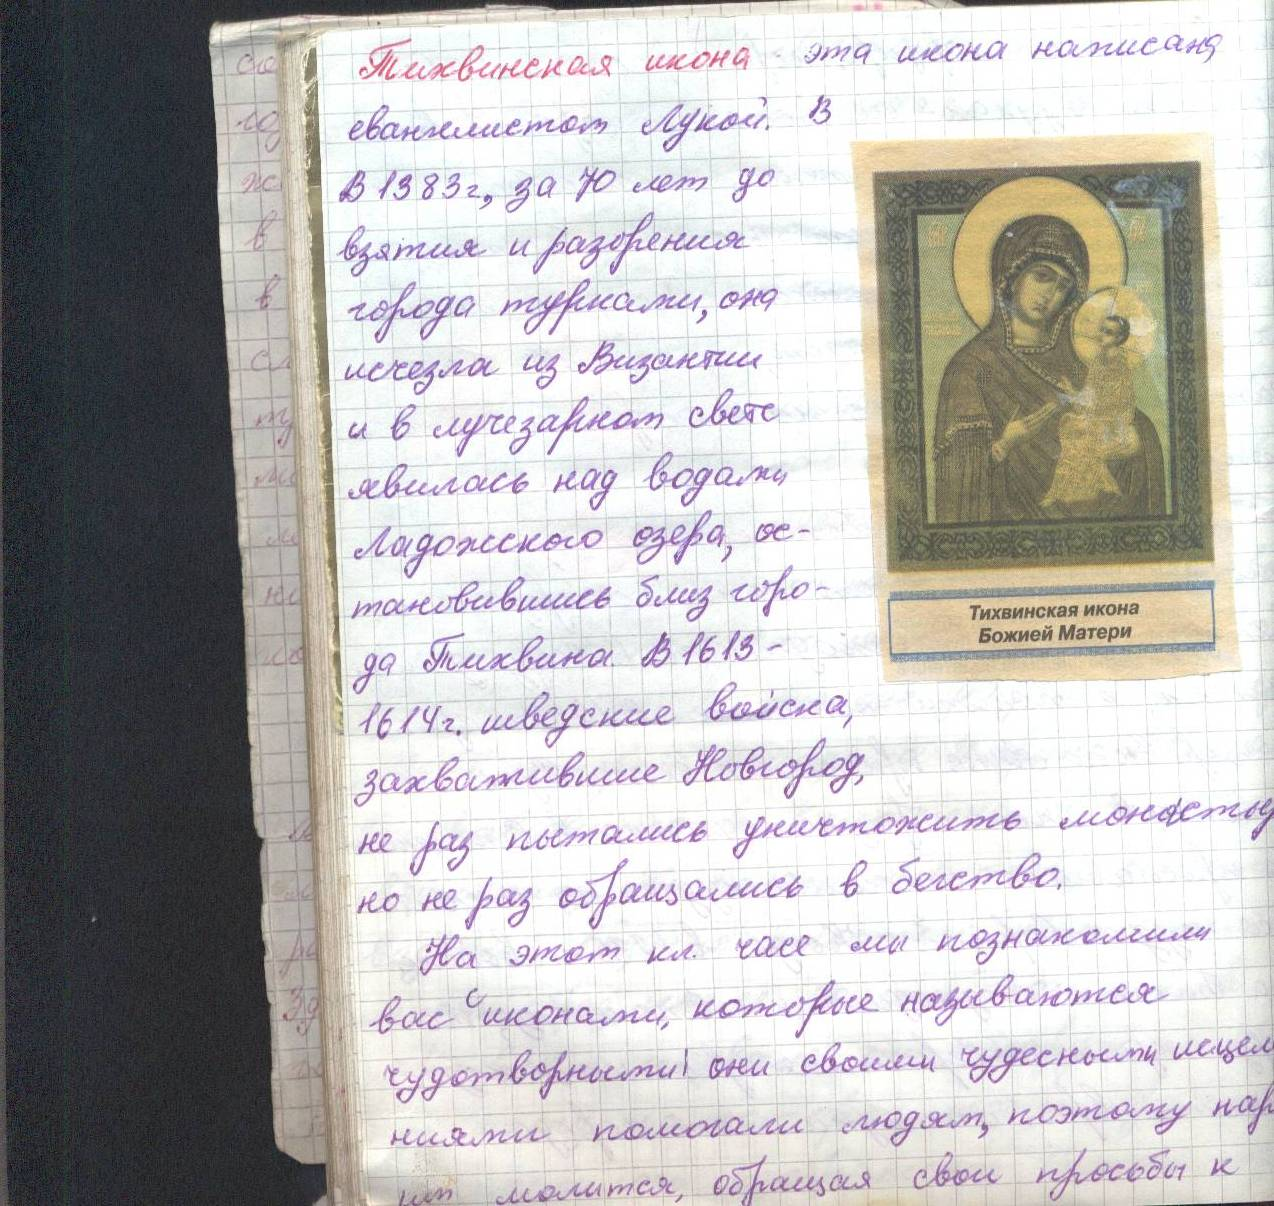 Тихвинская икона - эта икона написана
еванжлистом Лукой. В
В 1383г, за 70 лет до
взятия и разорения
города турками, она
исчезла из Византии
и в лучезарном свете
явилась над водами
Ладожского озера, ос-
тановившись близ горо-
да Тихвина В 1613 -
1614г. шведские войска,
захватившие Новгород,
не раз пытались уничтожить монасты
но не раз обращались в бегство.
На этот кл. часе мы познакомили
вас с иконами, которые называются
чудотворными! они своими чудесными исцел
ниями помогали людям, поэтому нар
им молится, обращая свои просьбы к
Тихвинская икона
Божией Матери